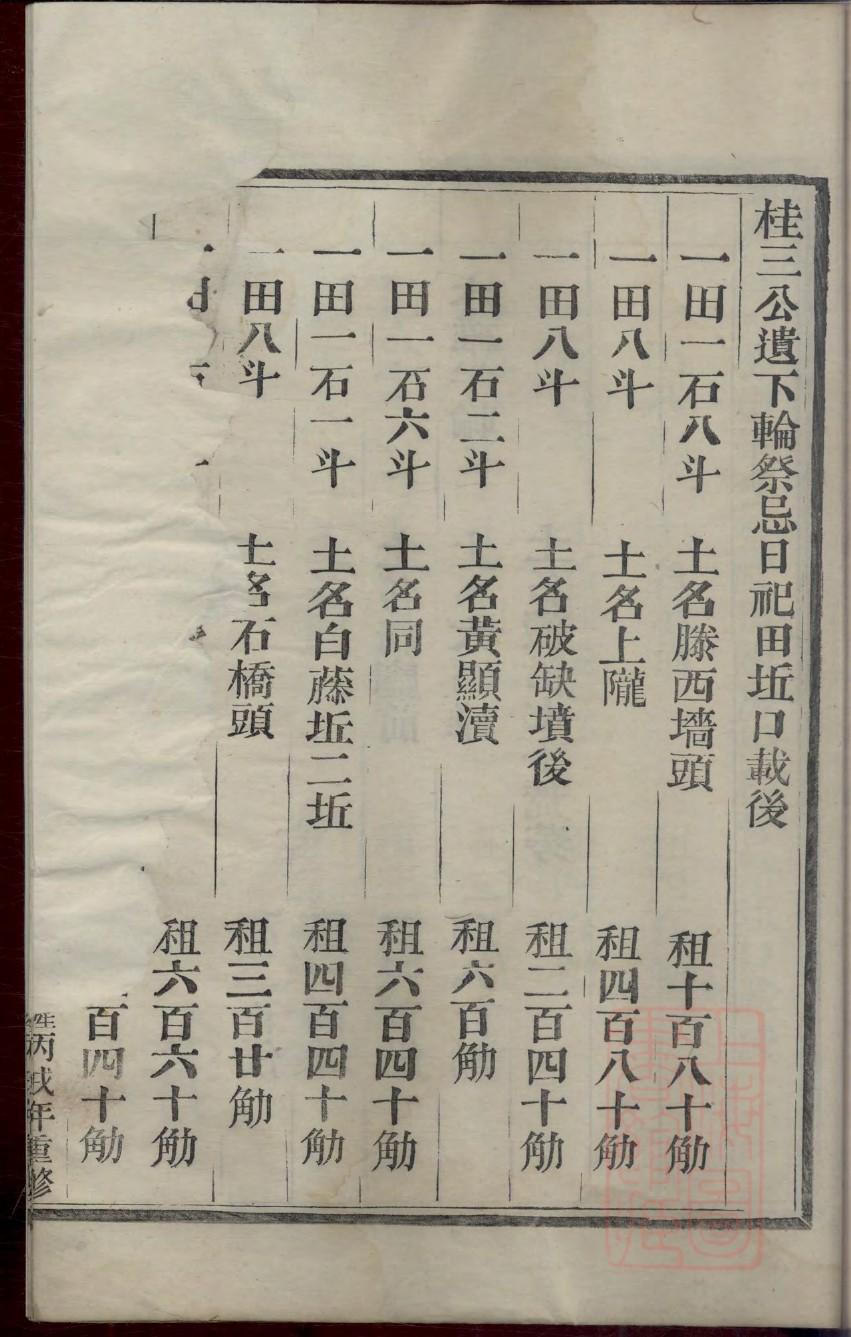 桂三公遺下輪祭忌日祀田坵口載後
一田一石八斗 土名滕西墻頭 租十百八十觔
一田八斗 土名上隴 租四百八十觔
一田八斗 土名破缺墳後 租二百四十觔
一田一石二斗 土名黃顯瀆 租六百觔
一田一石六斗 土名同 租六百四十觔
一田一石一斗 土名白藤坵二坵 租四百四十觔
一田八斗 土名石橋頭 租三百廿觔
一田 租六百六十觔
百四十觔
丙戌年重修